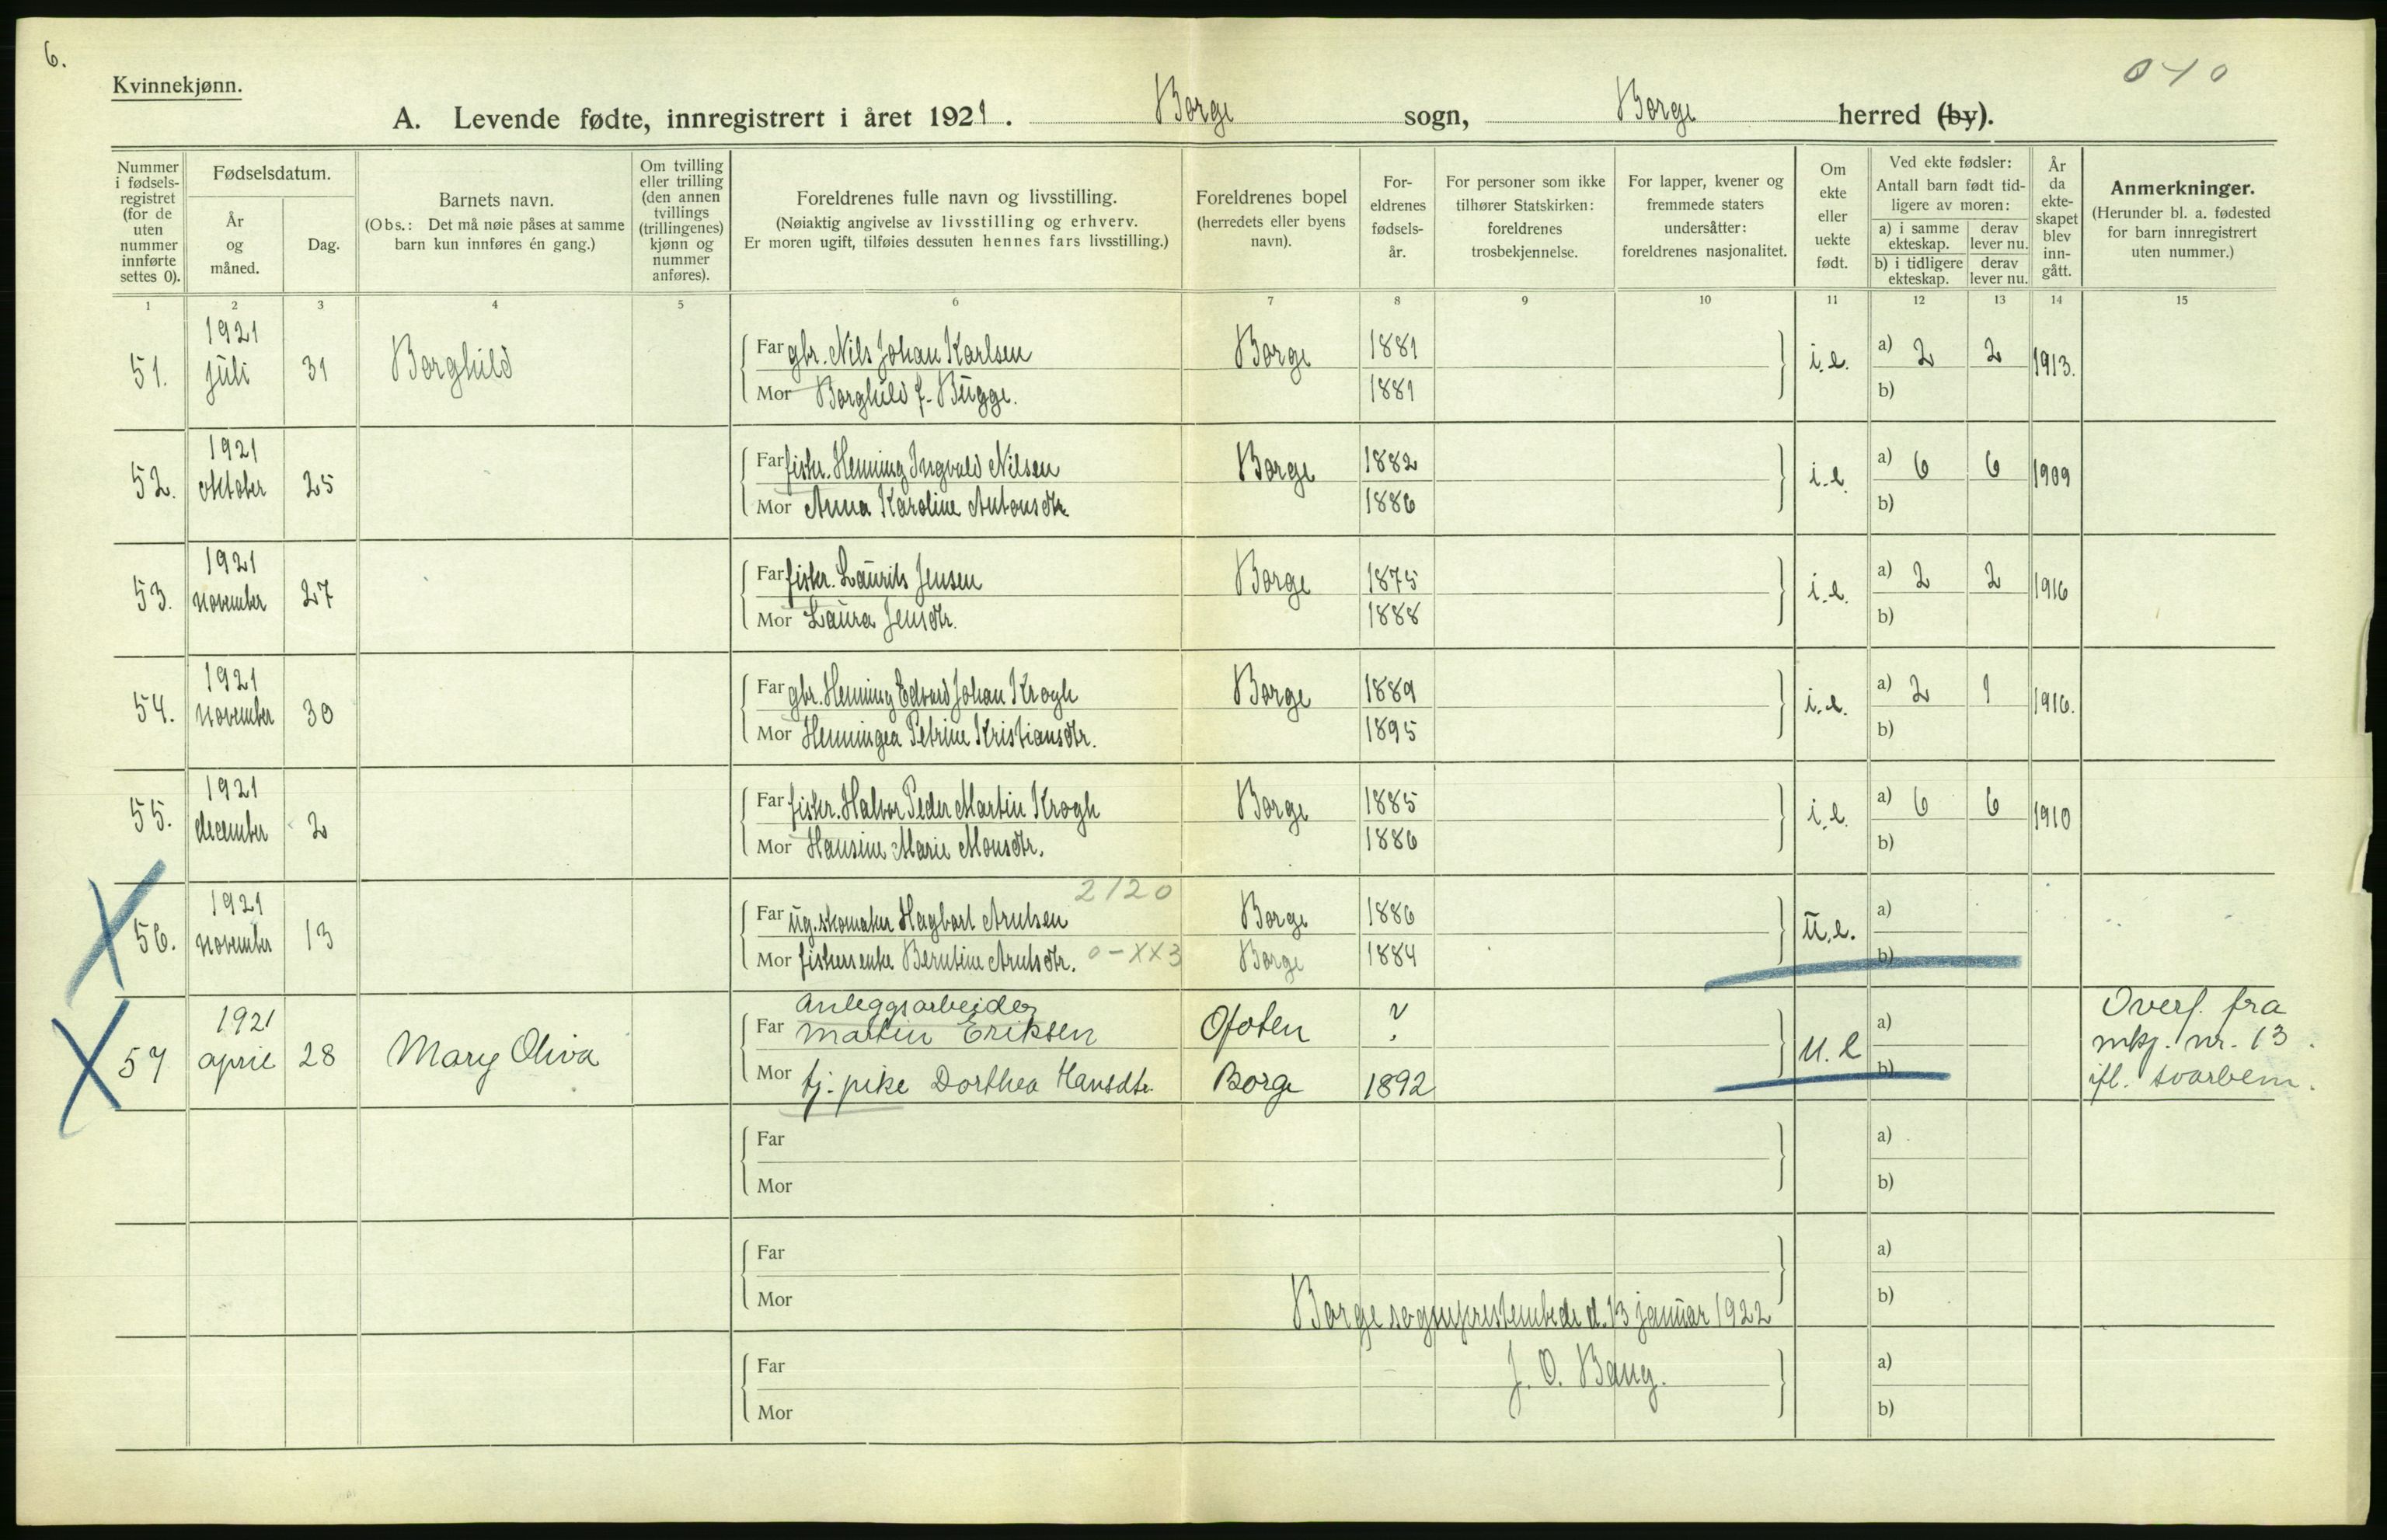 6.
Kvinnekjønn.
040
A. Levende fødte, innregistrert i året 1921. Borge sogn, Borge herred (by).
Nummer i fødsels-registret (for de uten nummer innførte settes 0).
Fødselsdatum.
År og måned.
Dag.
Barnets navn.
(Obs.: Det må nøie påses at samme barn kun innføres én gang.)
Om tvilling eller trilling (den annen tvillings (trillingenes) kjønn og nummer anføres).
Foreldrenes fulle navn og livsstilling.
(Nøiaktig angivelse av livsstilling og erhverv.
Er moren ugift, tilføies dessuten hennes fars livsstilling.)
Foreldrenes bopel (herredets eller byens navn).
For-eldrenes fødsels-år.
For personer som ikke tilhører Statskirken: foreldrenes trosbekjennelse.
For lapper, kvener og fremmede staters undersåtter: foreldrenes nasjonalitet.
Om ekte eller uekte født.
Ved ekte fødsler:
Antall barn født tid-ligere av moren:
a) i samme ekteskap. derav lever nu.
b) i tidligere ekteskap. derav lever nu.
År da ekte-skapet blev inn-gått.
Anmerkninger.
(Herunder bl. a. fødested for barn innregistrert uten nummer.)
1 2 3 4 5 6 7 8 9 10 11 12 13 14 15
51. 1921 juli 31 Borghild Far gbr. Nils Johan Karlsen Borge 1881 i.e. a) 2 2 1913.
Mor Borghild f. Bugge. 1881 b)
52. 1921 oktober 25 Far fisker. Henning Ingvald Nilsen Borge 1882 i.e. a) 6 6 1909
Mor Anna Karoline Antonsdtr. 1886 b)
53. 1921 november 27 Far fisker. Laurits Jensen Borge 1875 i.e. a) 2 2 1916
Mor Laura Jensdtr. 1888 b)
54. 1921 november 30 Far gbr. Henning Edvard Johan Krogh Borge 1889 i.e. a) 2 1 1916.
Mor Henningea Petrine Kristiansdtr. 1895 b)
55. 1921 december 2 Far fisker. Halvor Peder Martin Krogh Borge 1885 i.e. a) 6 6 1910
Mor Hansine Marie Monsdtr. 1886 b)
2120
56. 1921 november 13 Far ug. skomaker Hagbart Arntsen Borge 1886 u.e. a)
Mor fiskerenke Berntine Arntsdtr. 0-XX3 Borge 1884 b)
57 1921 april 28 Mary Oliva Far Anleggsarbeider Martin Eriksen Ofoten ? u.e a) Overf. fra mkj. nr. 13 ifl. svarbem.
Mor tj. pike Dorthea Hansdtr. Borge 1892 b)
Far a)
Mor b)
Far a)
Mor b)
Borge sogneprestembede d. 13 januar 1922
Far a)
J. O. Bang.
Mor b)